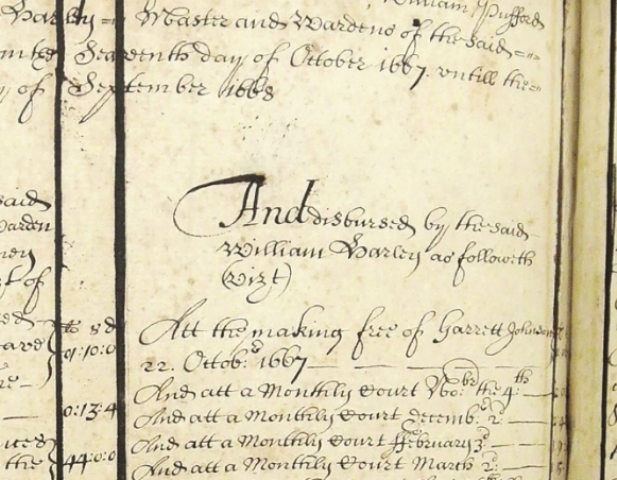 William Pufford
Master and Wardens of the said
Seaventh day of October 1667. untill the
of September 1668
And disbursed by the said
William Harley as followeth
(Vizt)
Att the making free of Garrett Johnson
22. Octobr: 1667
And att a Monthly Court Nobr: the 4th:
And att a Monthly Court Decemb: 2:
And att a Monthly Court ffebruary 3d
And att a Monthly Court March 2:
said
of
 li s d
01:10:0
0:13:4
the
44:0:0